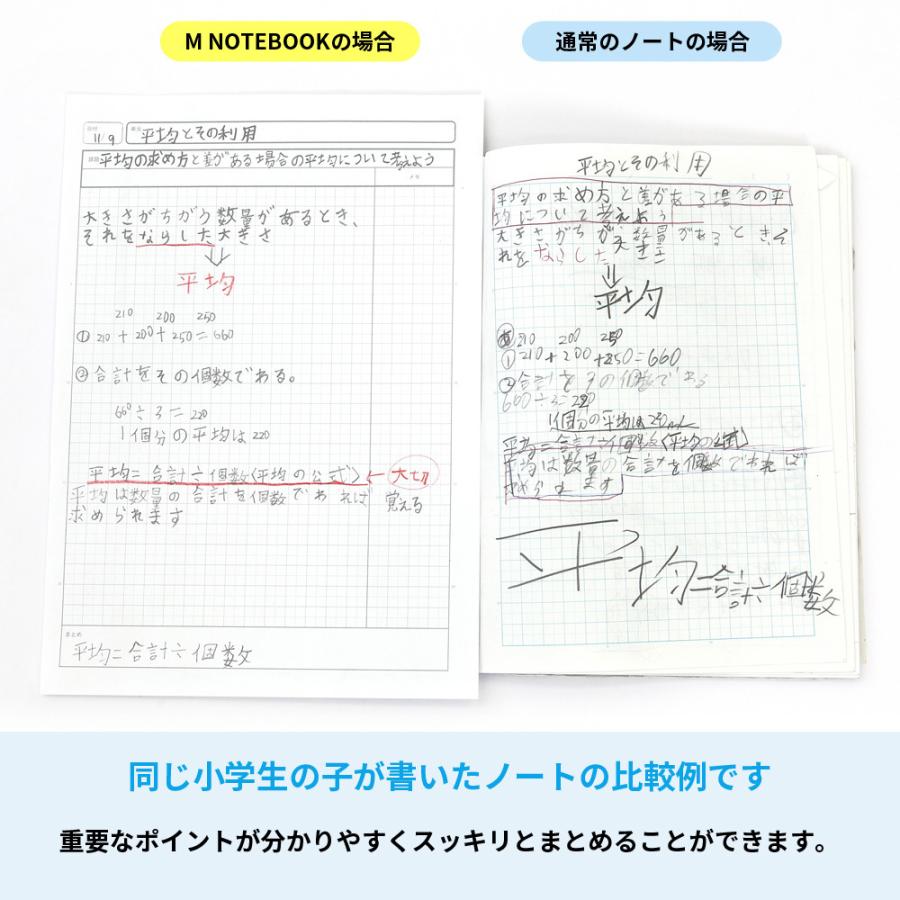 M NOTEBOOKの場合
通常のノートの場合
11/9
平均とその利用
平均の求め方と差がある場合の平均について考えよう
メモ
大きさがちがう数量があるとき、
それをならした大きさ
平均
210 200 250
① 210+200+250=660
②合計をその個数でわる。
660÷3=220
1個分の平均は220
平均=合計÷個数(平均の公式)←大切
平均は数量の合計を個数でわれば 覚える
求められます
まとめ
平均=合計÷個数
平均とその利用
平均の求め方と差がある場合の平
均について考えよう
大きさがちがう数量があるとき、そ
れをならした大きさ
平均
210 200 250
①210+200+250=660
②合計をその個数でわる
660÷3=220
1個分の平均は
平均=合計÷個数(平均の公式)
平均は数量の合計を個数でわれば
ます
平均=合計÷個数
同じ小学生の子が書いたノートの比較例です
重要なポイントが分かりやすくスッキリとまとめることができます。